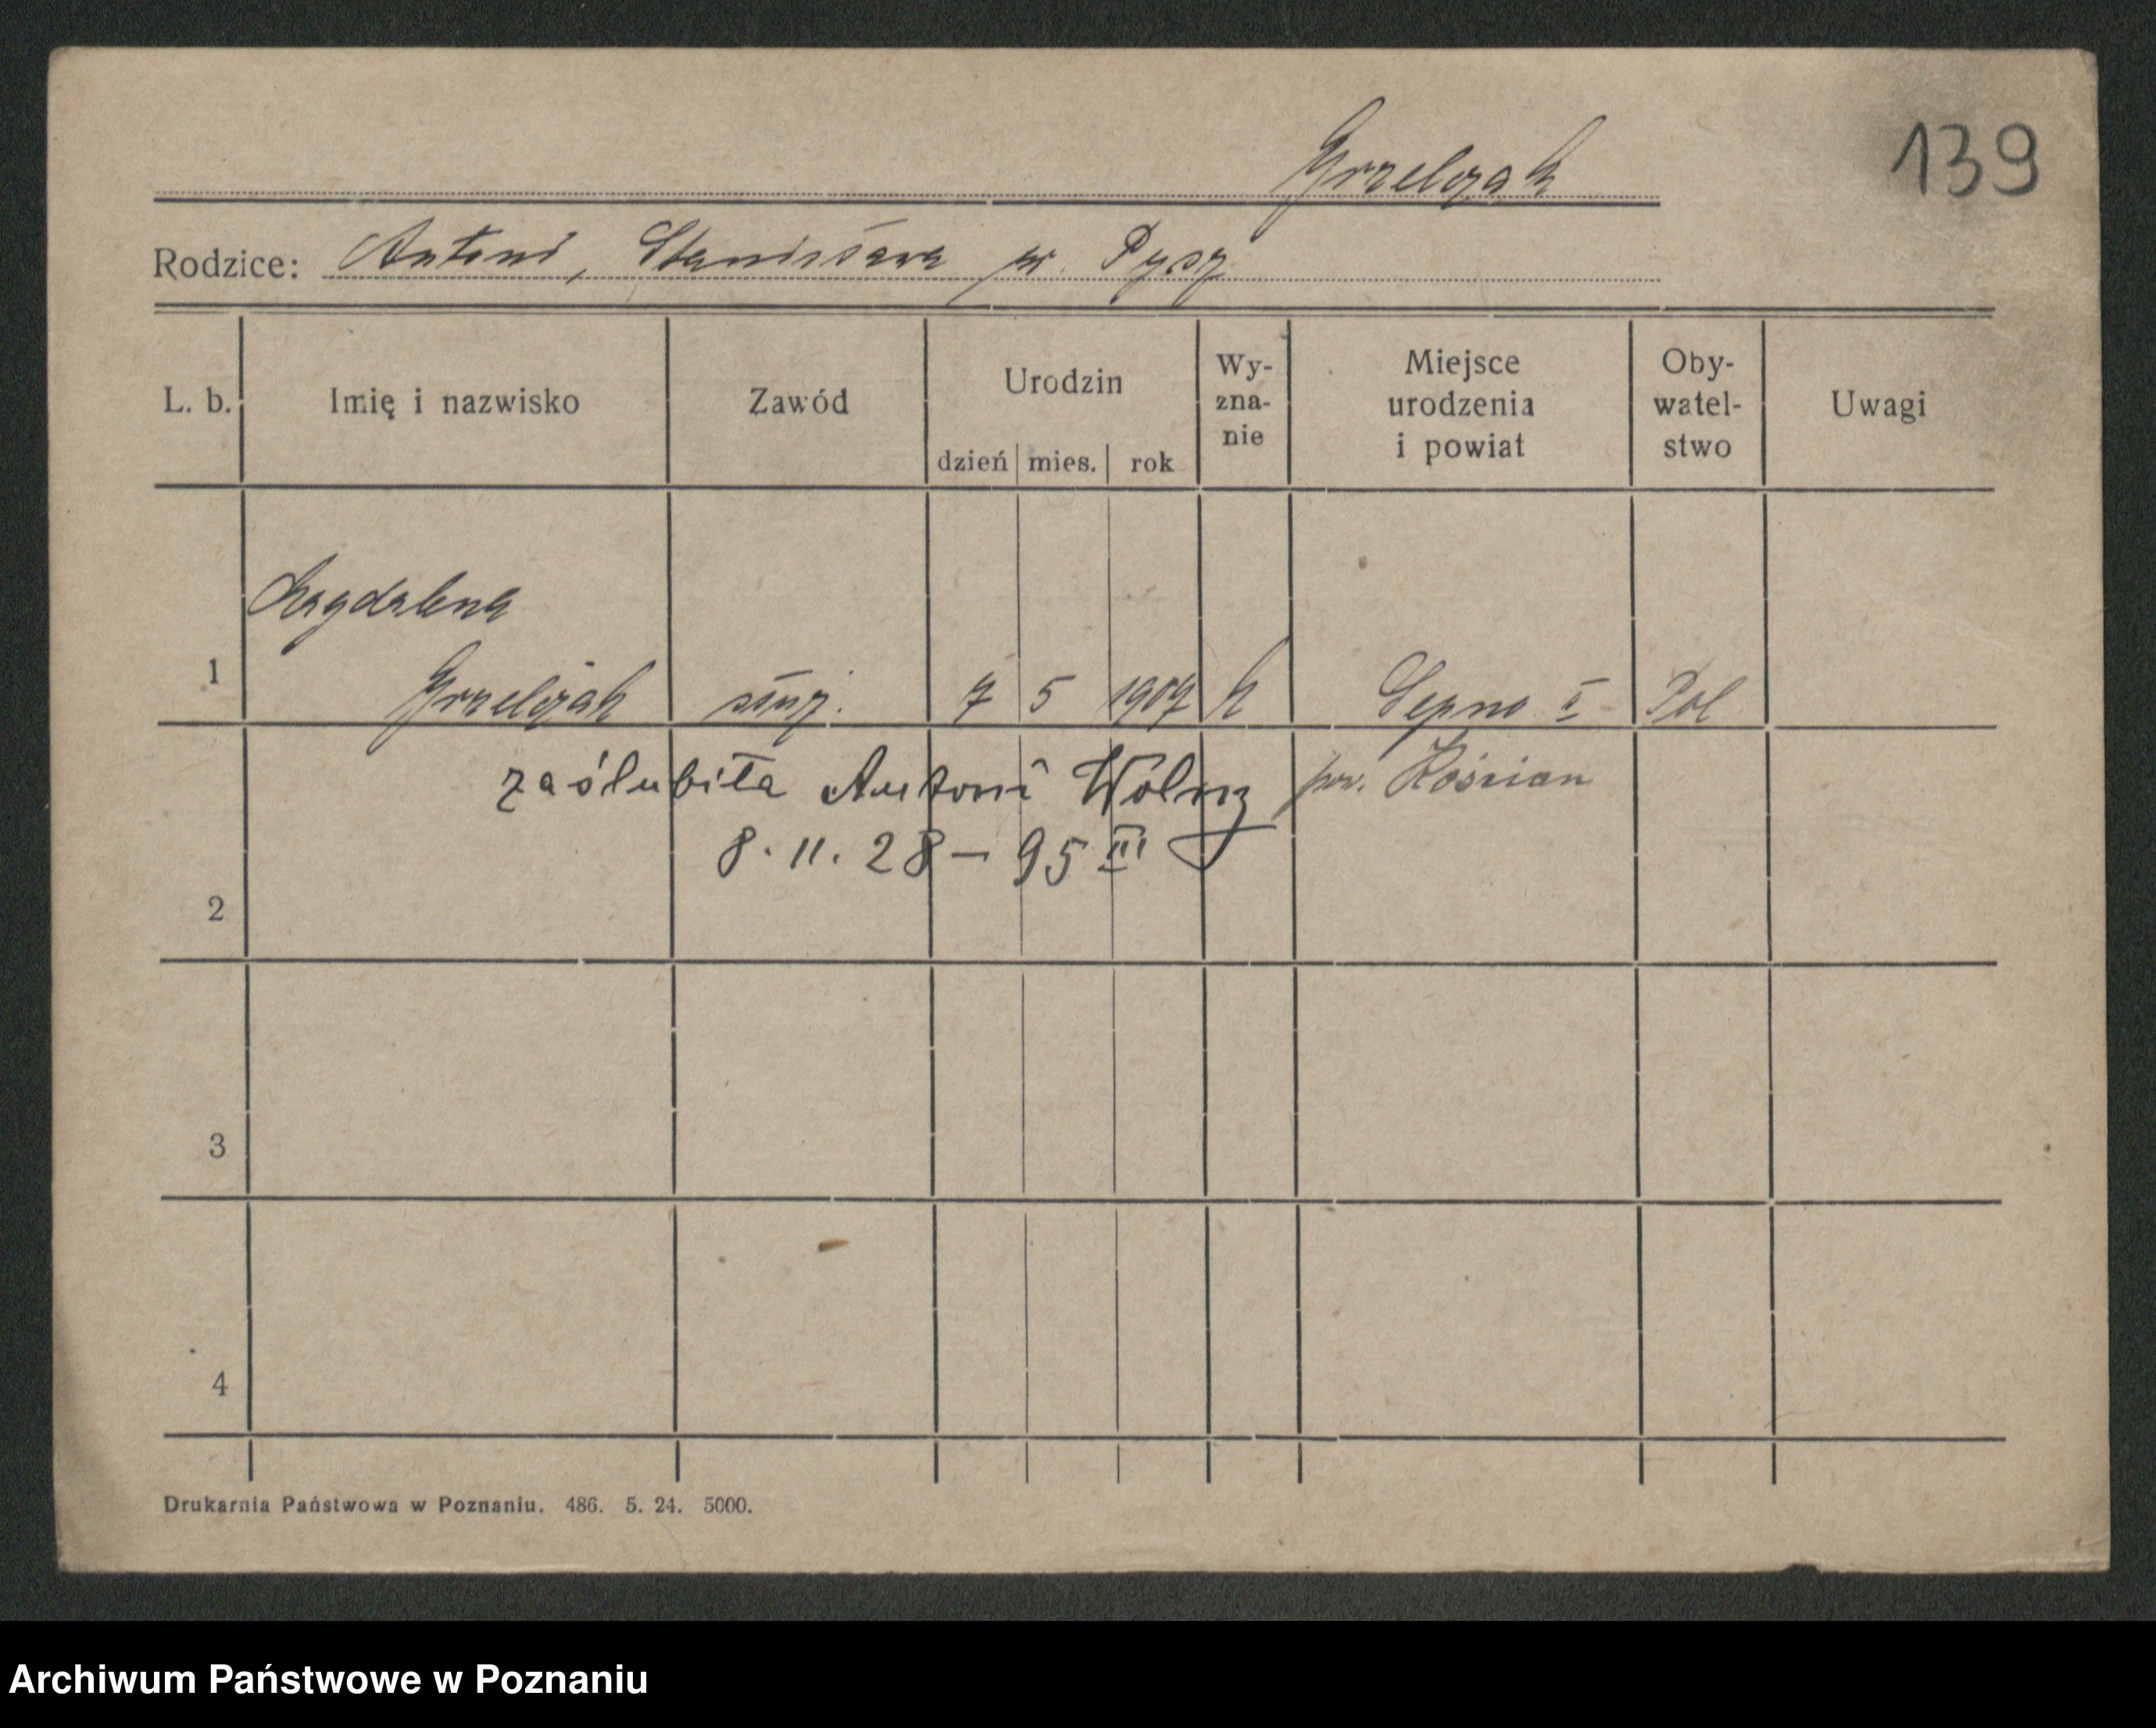 139
Grzelczak
Rodzice: Antoni, Stanisława pr. Pysz
L. b. Imię i nazwisko Zawód Urodzin dzień mies. rok Wy-zna-nie Miejsce urodzenia i powiat Oby-watel-stwo Uwagi
Magdalena
1 Grzelczak służ. 7 5 1907 k Sepno Pol
zaślubiła Antoni Wolny pow. Kościan
8. 11. 28 – 95 III
2
3
4
Drukarnia Państwowa w Poznaniu. 486. 5. 24. 5000.
Archiwum Państwowe w Poznaniu